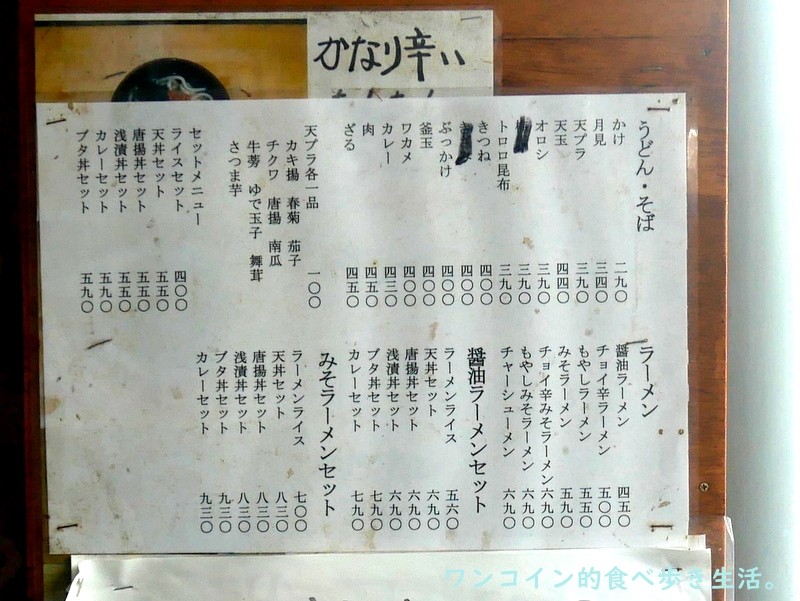 かなり辛い
うどん・そば
かけ 二九〇
月見 三四〇
天プラ 三九〇
天玉 四四〇
オロシ 三九〇
三九〇
トロロ昆布 三九〇
きつね 四〇〇
四〇〇
ぶっかけ 四〇〇
釜玉 四〇〇
ワカメ 四〇〇
カレー 四三〇
肉 四五〇
ざる 四五〇
天プラ各一品 一〇〇
カキ揚 春菊 茄子
チクワ 唐揚 南瓜
牛蒡 ゆで玉子 舞茸
さつま芋
セットメニュー
ライスセット 四〇〇
天丼セット 五五〇
唐揚丼セット 五五〇
浅漬丼セット 五五〇
カレーセット 五九〇
ブタ丼セット 五九〇
ラーメン
醤油ラーメン 四五〇
チョイ辛ラーメン 五〇〇
もやしラーメン 五五〇
みそラーメン 五九〇
チョイ辛みそラーメン 六九〇
もやしみそラーメン 六九〇
チャーシューメン 六九〇
醤油ラーメンセット
ラーメンライス 五六〇
天丼セット 六九〇
唐揚丼セット 六九〇
浅漬丼セット 六九〇
ブタ丼セット 七九〇
カレーセット 七九〇
みそラーメンセット
ラーメンライス 七〇〇
天丼セット 八三〇
唐揚丼セット 八三〇
浅漬丼セット 八三〇
ブタ丼セット 九三〇
カレーセット 九三〇
ワンコイン的食べ歩き生活。